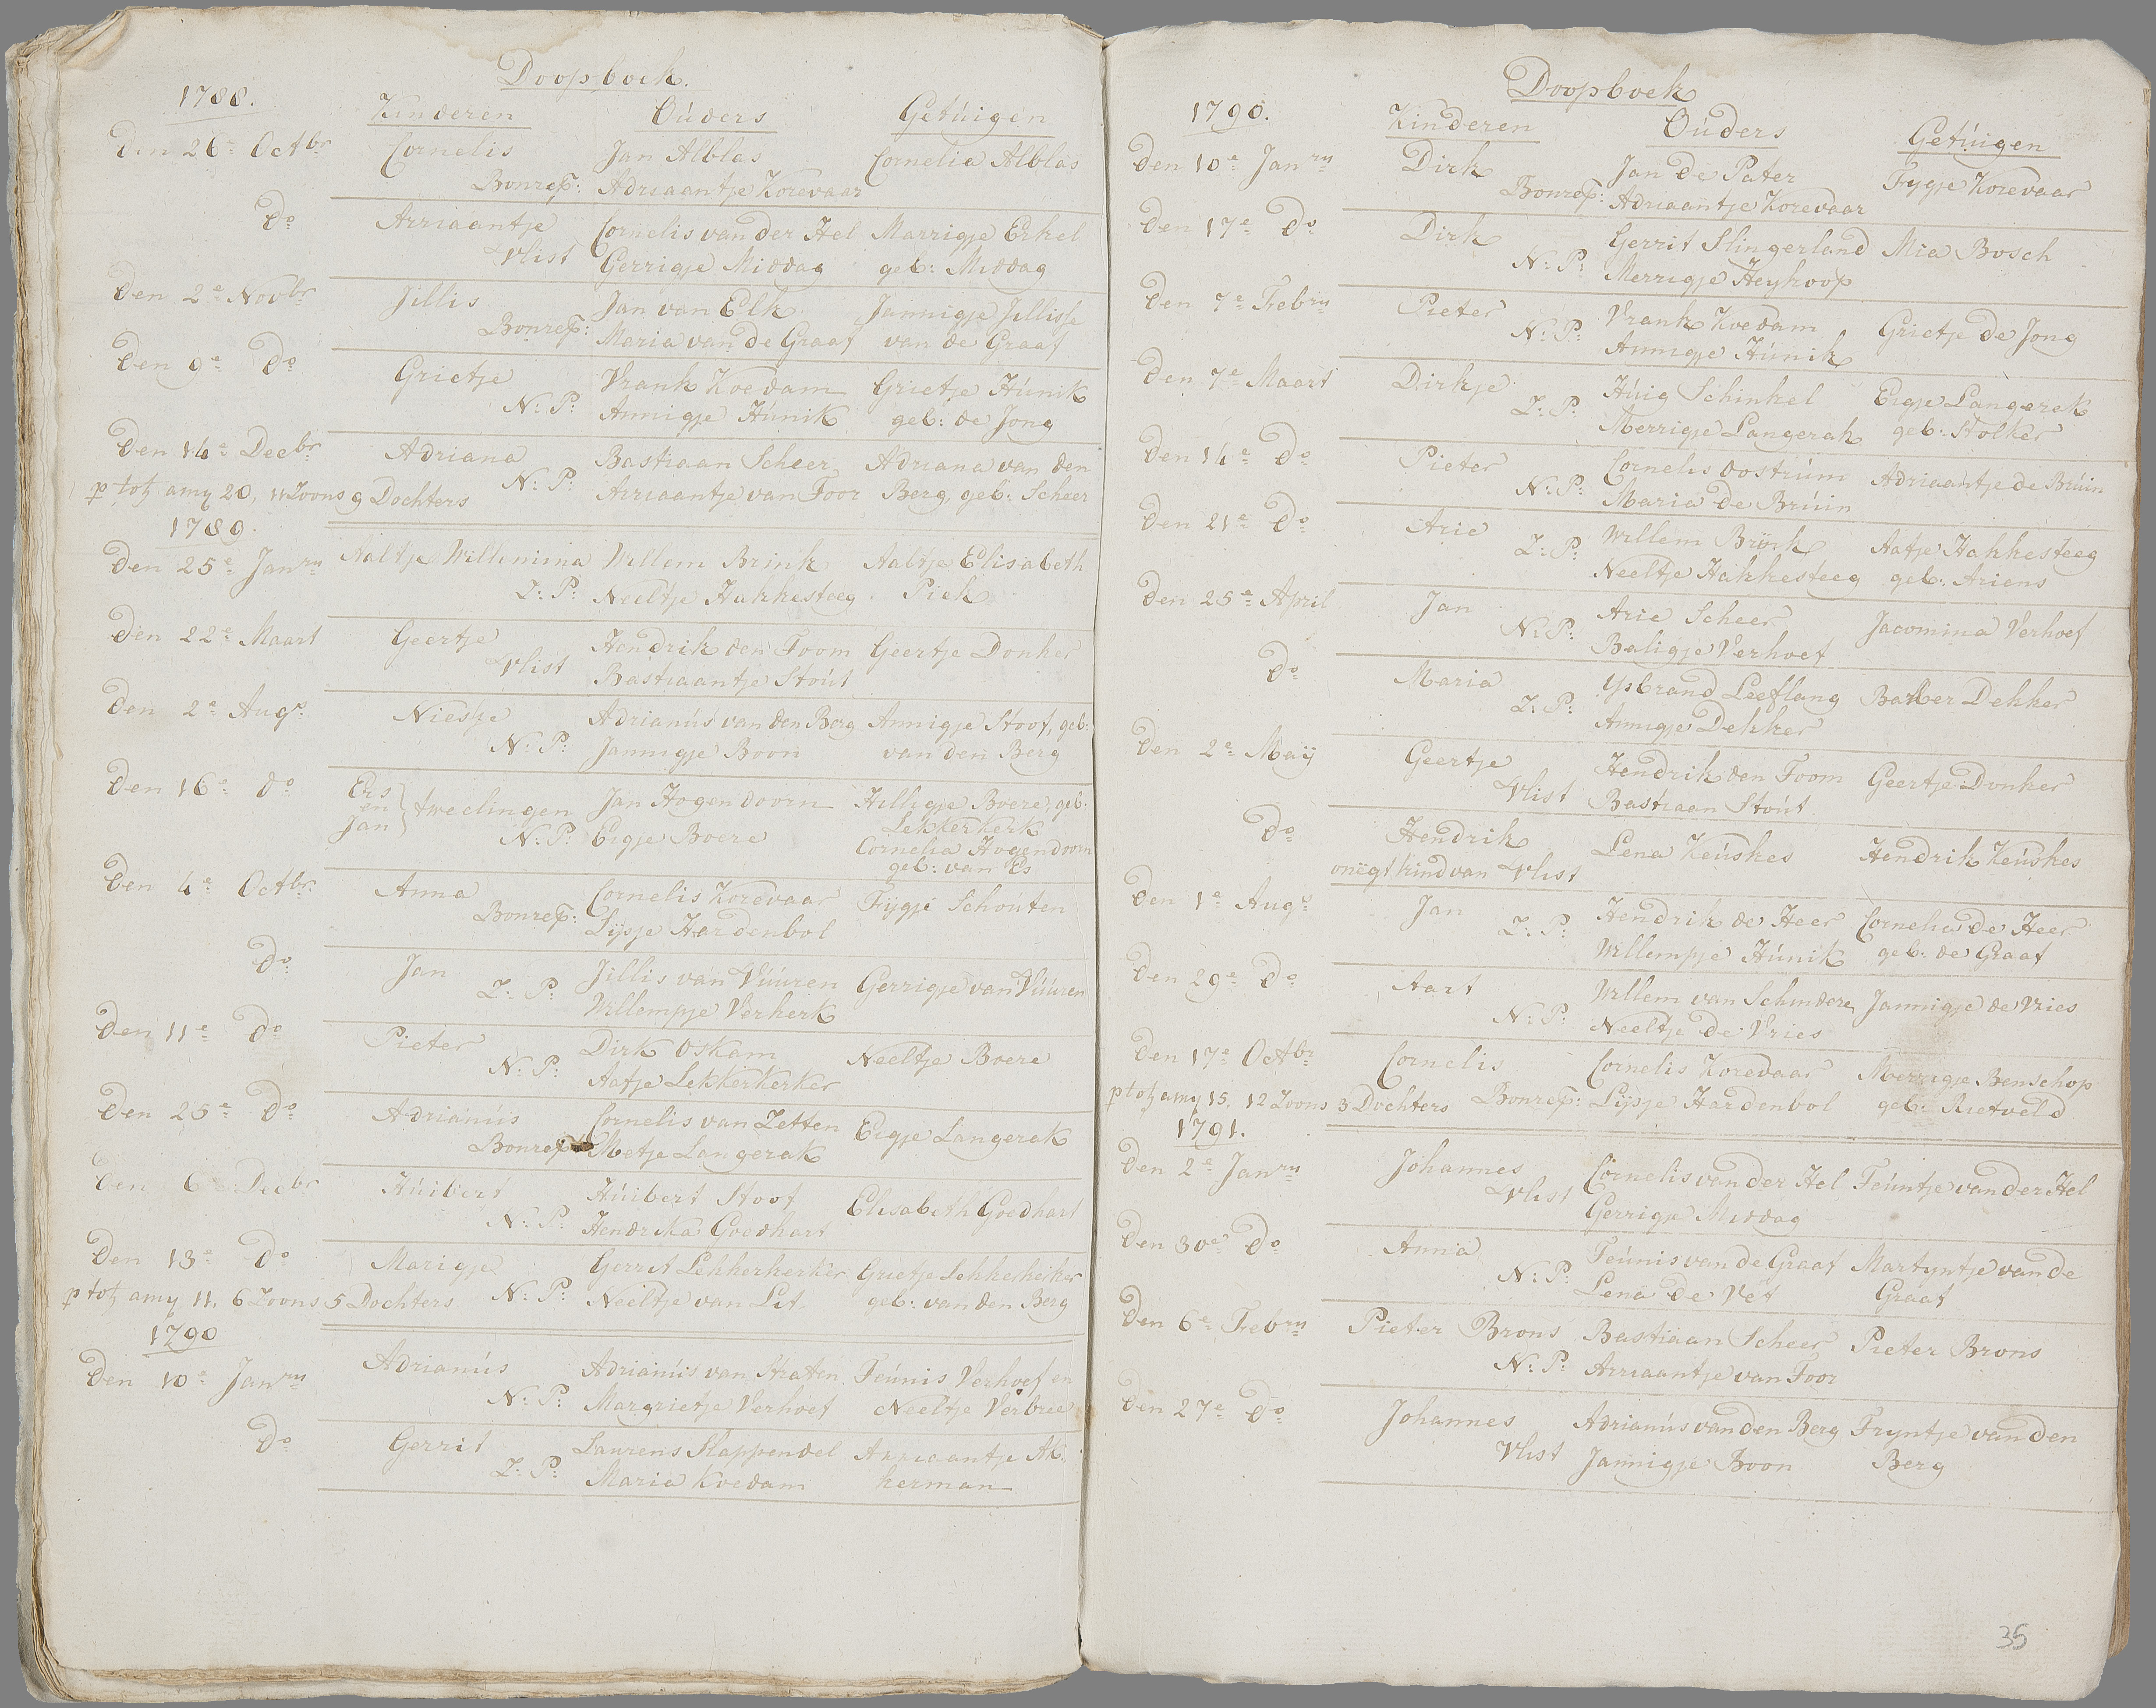 Doopboek.
1788.
Kinderen Oúders Getúigen
Den 26e Octbr Cornelis Jan Alblas Cornelia Alblas
Bonrep: Adriaantje Korevaar
do Arriaantje Cornelis van der Hel Marrigje Erkel
Vlist Gerrigje Middag geb: Middag
Den 2e Novbr Jillis Jan van Elk Jannigje Jillisse
Bonrep: Maria van de Graaf van de Graaf
Den 9e do Grietje Vrank Koedam Grietje Húnik
N: P: Annigje Húnik geb: de Jong
Den 14e Decbr Adriana Bastiaan Scheer Adriana van den
N: P: Arriaantje van Toor Berg, geb: Scheer
p tot: amy 20, 11 Zoons 9 Dochters
1789.
Den 25e Janry Aaltje Willemina Willem Brink Aaltje Elisabeth
Z: P: Neeltje Hakkesteeg Piek
Den 22e Maart Geertje Hendrik den Toom Geertje Donker
Vlist Bastiaantje Stoút
Den 2e Augs Niesje Adrianús van den Berg Annigje Stoof, geb:
N: P: Jannigje Boon van den Berg
Den 16e do Ers en Jan } tweelingen Jan Hogendoorn Hilligje Boere, geb:
Lekkerkerk
N: P: Eigje Boere Cornelia Hogendoorn
geb: van Es
Den 4e Octbr: Anna Cornelis Korevaar Fijgje Schoúten
Bonrep: Lijsje Hardenbol
do Jan Jillis van Vúúren Gerrigje van Vúúren
Z: P: Willempje Verkerk
Den 11e do Pieter Dirk Oskam Neeltje Boere
N: P: Aafje Lekkerkerker
Den 25e do Adrianús Cornelis van Zetten Eigje Langerak
Bonrep Metje Langerak
Den 6e Decbr Húibert Húibert Stoof Elisabeth Goedhart
N: P: Hendrika Goedhart
Den 13e do Marigje Gerrit Lekkerkerker Grietje Lekkerkerker
N: P: Neeltje van Lit geb: van den Berg
p tot: amy 11, 6 Zoons 5 Dochters
1790
Den 10e Janry Adrianús Adrianús van Straten Teúnis Verhoef en
N: P: Margrietje Verhoef Neeltje Verbree
do Gerrit Laurens Slappendel Arriaantje Ak:
Z: P: Maria Koedam kerman
Doopboek
1790.
Kinderen Oúders Getúigen
Den 10e Janry Dirk Jan de Pater Fygje Korevaar
Bonrep: Adriaantje Korevaar
Den 17e do Dirk Gerrit Slingerland Mia Bosch
N: P: Merrigje Heykoop
Den 7e Febry Pieter Vrank Koedam Grietje de Jong
N: P: Annigje Húnik
Den 7e Maart Dirkje Húig Schinkel Eigje Langerak
Z: P: Merrigje Langerak geb: Stolker
Den 14e do Pieter Cornelis Oostrúm Adriaantje de Brúin
N: P: Maria de Brúin
Den 21e do Arie Willem Brink Aafje Hakkesteeg
Z: P: Neeltje Hakkesteeg geb: Ariens
Den 25e April Jan Arie Scheer Jacomina Verhoef
N: P: Baligje Verhoef
do Maria Ysbrand Leeflang Barber Dekker
Z: P: Annigje Dekker
Den 2e Maÿ Geertje Hendrik den Toom Geertje Donker
Vlist Bastiaan Stoút
do Hendrik Lena Keúskes Hendrik Keúskes
onegt kind van Vlist
Den 1e Augs Jan Hendrik de Heer Cornelia de Heer
Z: P: Willempje Húnik geb: de Graaf
Den 29e do Aart Willem van Schindere Jannigje de Vries
N: P: Neeltje de Vries
Den 17e Octbr Cornelis Cornelis Korevaar Merrigje Benschop
Bonrep: Lijsje Hardenbol geb: Rietveld
p tot: amy 15, 12 Zoons 3 Dochters
1791.
Den 2e Janry Johannes Cornelis van der Hel Teúntje van der Hel
Vlist Gerrigje Middag
Den 30e do Anna Teúnis van de Graaf Martyntje van de
N: P: Lena de Vet Graaf
Den 6e Febry Pieter Brons Bastiaan Scheer Pieter Brons
N: P: Arriaantje van Toor
Den 27e do Johannes Adrianús van den Berg Tryntje van den
Vlist Jannigje Boon Berg
35